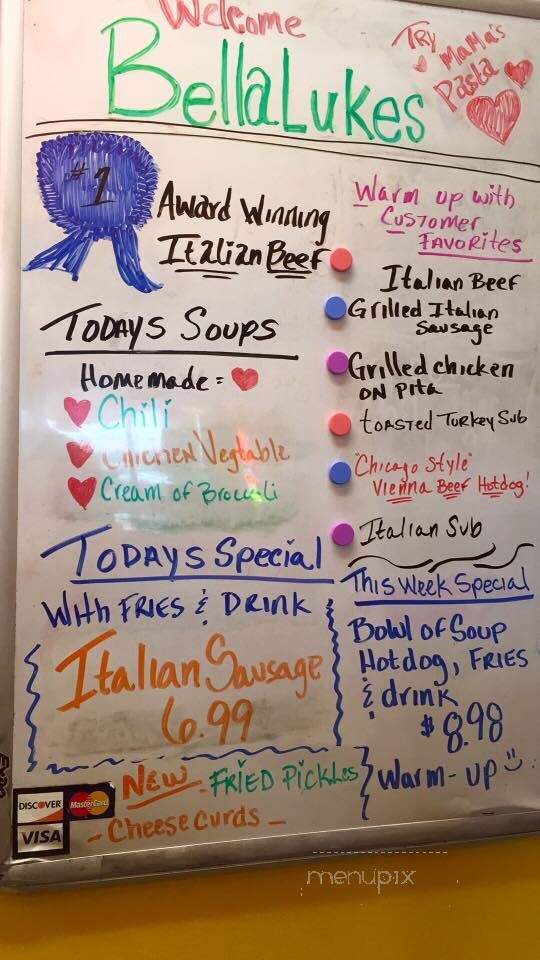 Welcome
BellaLukes
TRY MaMa's
Pasta
#1
Award Winning
Italian Beef
Warm up with
Customer
Favorites
Italian Beef
Grilled Italian
Sausage
Grilled chicken
on Pita
toasted Turkey Sub
"Chicago Style"
Vienna Beef Hotdog!
Italian Sub
Todays Soups
Homemade =
Chili
Chicken Vegtable
Cream of Broccoli
Todays Special
With Fries & Drink
Italian Sausage
6.99
This Week Special
Bowl of Soup
Hotdog, Fries
& drink
$8.98
Warm-up
New - Fried Pickles
- Cheese curds -
DISCOVER
MasterCard
VISA
menupix